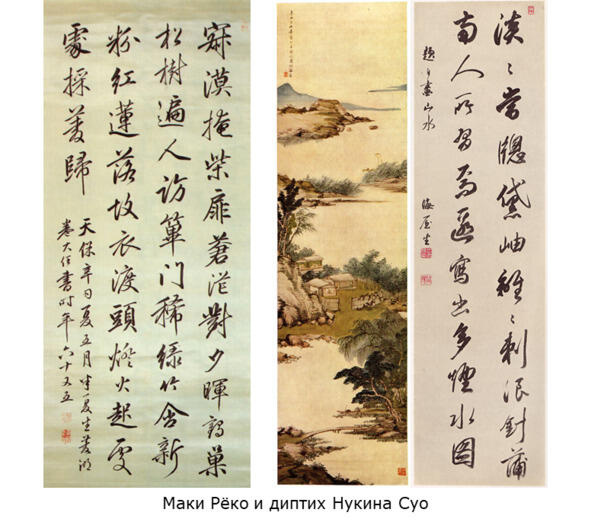 寂漠掩柴扉蒼茫對夕暉鶴巢
松樹遍人訪蓽門稀綠竹含新
粉紅蓮落故衣渡頭燈火起處
處採菱歸
天保辛丑夏五月半夏生菱湖
卷大任書時年六十又五
淡〻當牕黛岫離〻刺浪針蒲
南人所習為寫出多煙水圖
題自畫山水
海屋生
Маки Рёко и диптих Нукина Суо